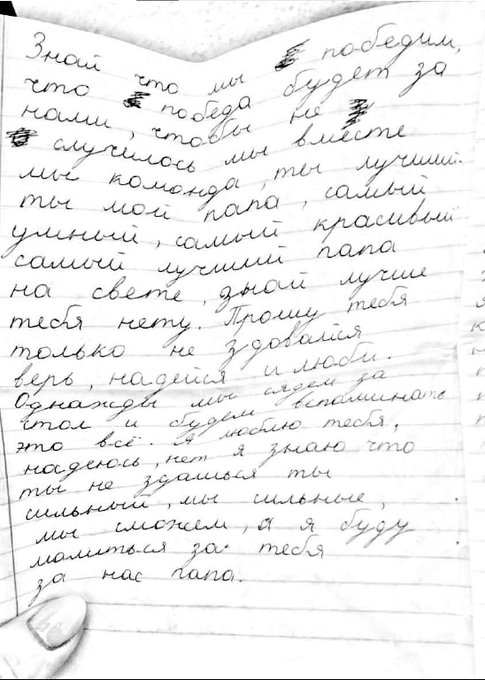 Знай что мы победим,
что победа будет за
нами, чтобы не
случилось мы вместе
мы команда, ты лучший
ты мой папа, самый
умный, самый красивый
самый лучший папа
на свете, знай лучше
тебя нету. Прошу тебя
только не здовайся
верь, надейся и люби.
Однажды мы сядем за
стол и будем вспоминать
это всё. Я люблю тебя,
надеюсь, нет я знаю что
ты не здашься ты
сильный, мы сильные,
мы сможем, а я буду
молиться за тебя
за нас папа.